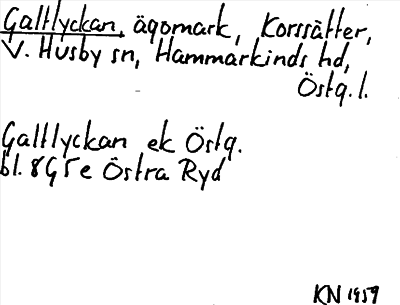 Galtlyckan, ägomark, Korssätter,
V. Husby sn, Hammarkinds hd,
Östg. l.
Galtlyckan ek Östg.
bl. 8G5e Östra Ryd
KN 1959